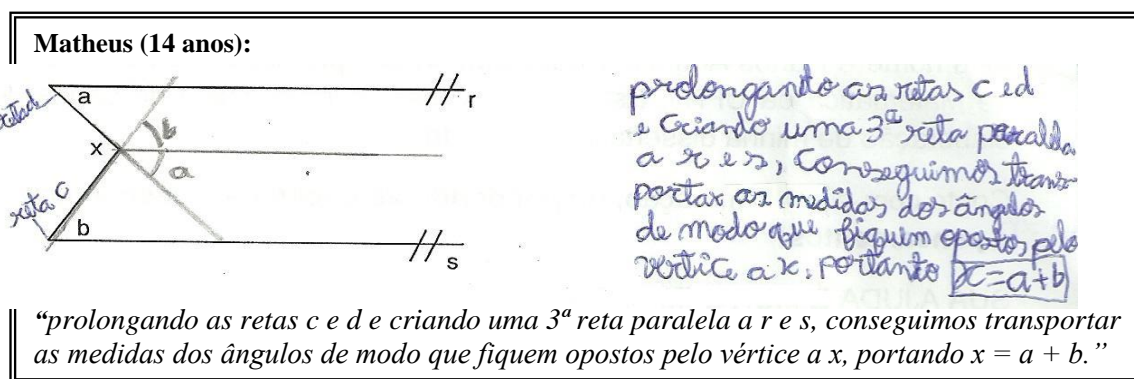 Matheus (14 anos):
reta d
a
r
b
x
a
reta c
b
s
prolongando as retas c e d
e criando uma 3ª reta paralela
a r e s, conseguimos trans-
portar as medidas dos ângulos
de modo que fiquem opostos pelo
vértice a x, portanto x=a+b
“prolongando as retas c e d e criando uma 3ª reta paralela a r e s, conseguimos transportar
as medidas dos ângulos de modo que fiquem opostos pelo vértice a x, portando x = a + b.”